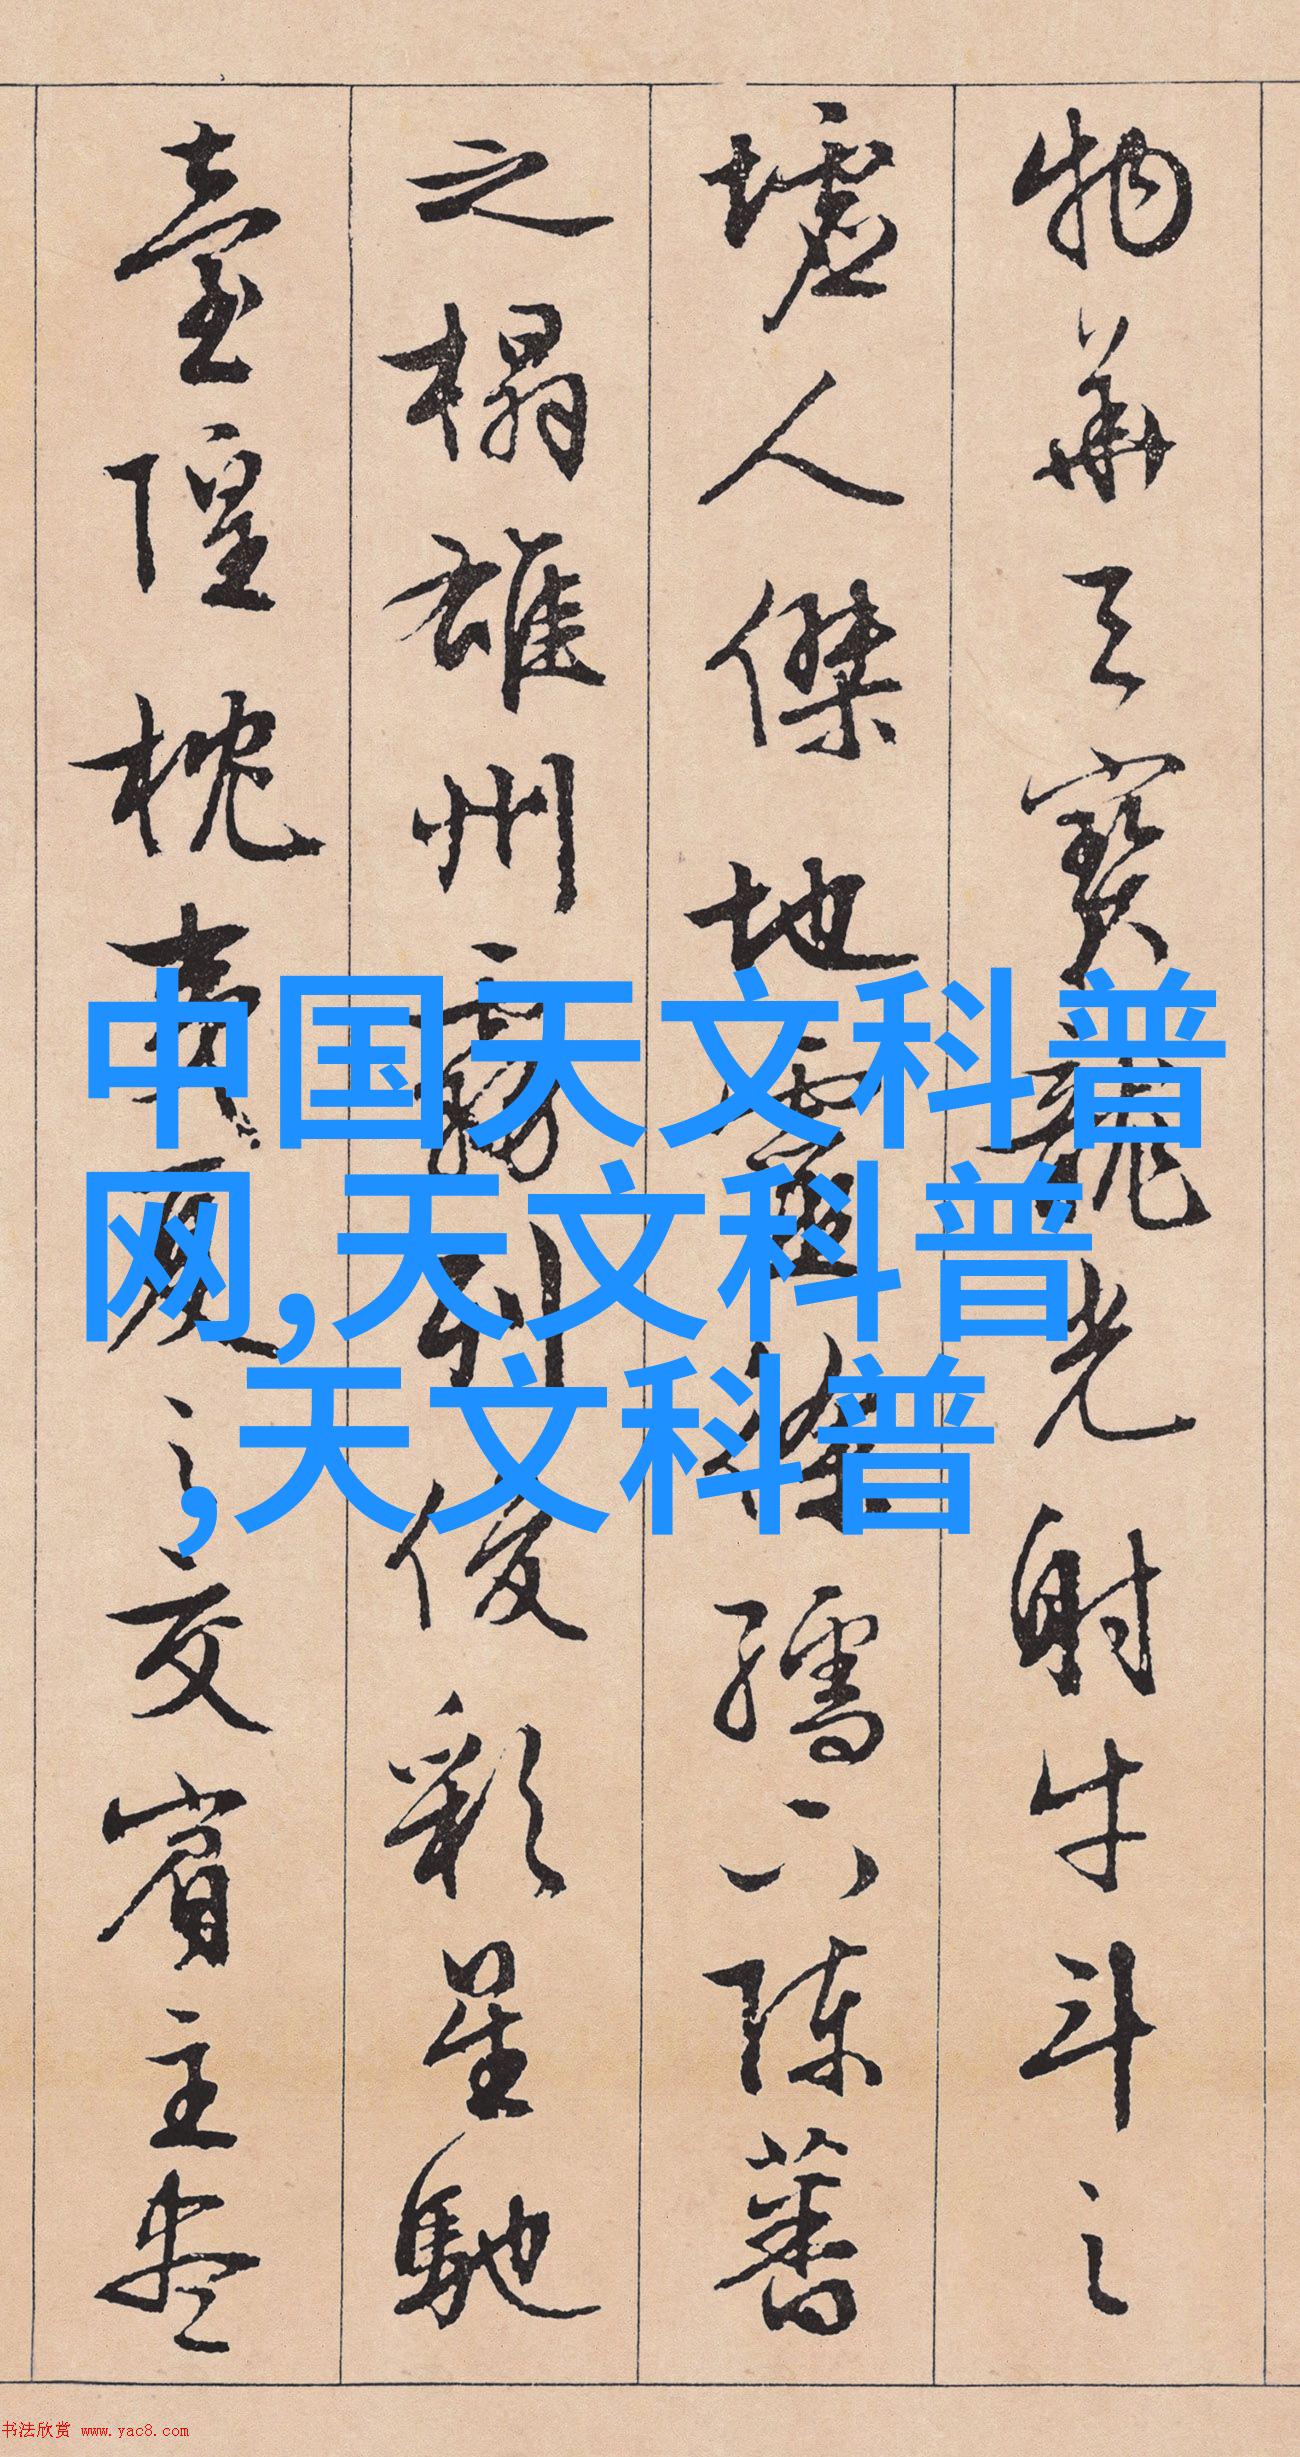 物華天寶龍光射牛斗之
墟人傑地靈徐孺下陳蕃
之榻雄州霧列俊彩星馳
臺隍枕夷夏之交賓主盡
中国天文科普
网,天文科普
,天文科普
书法欣赏 www.yac8.com